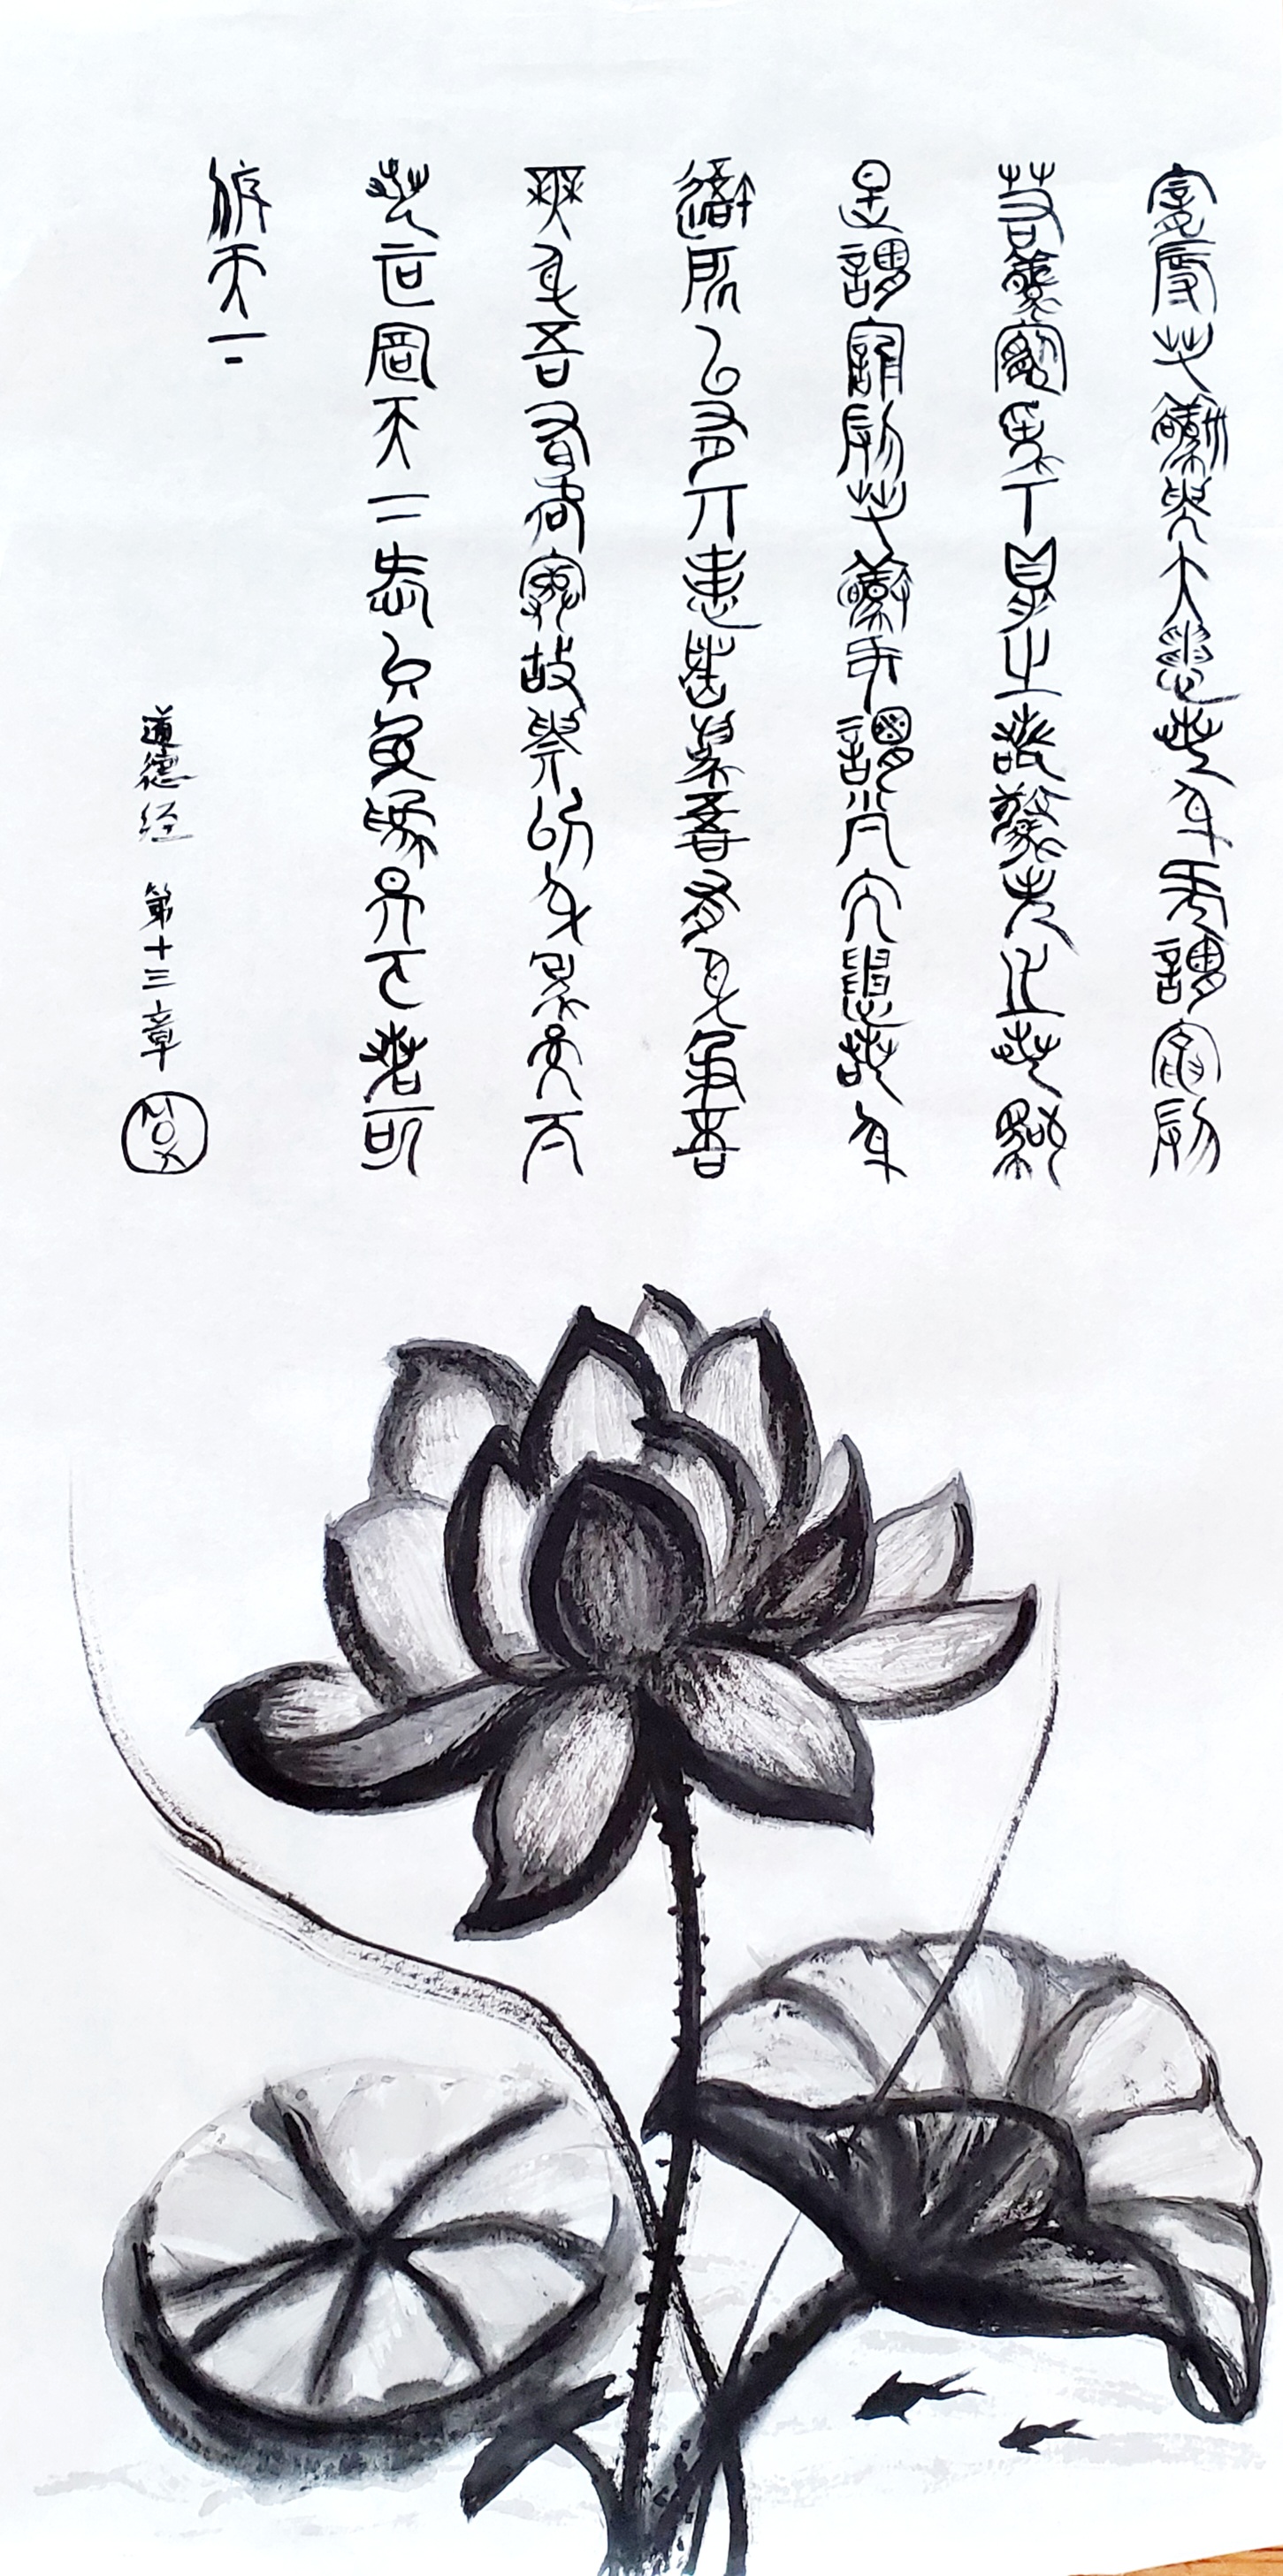 寵辱若驚貴大患若身何謂寵辱
若驚寵為下得之若驚失之若驚
是謂寵辱若驚何謂貴大患若身
吾所以有大患者為吾有身及吾
無身吾有何患故貴以身為天下
若可寄天下愛以身為天下若可
託天下
道德经 第十三章
MOK